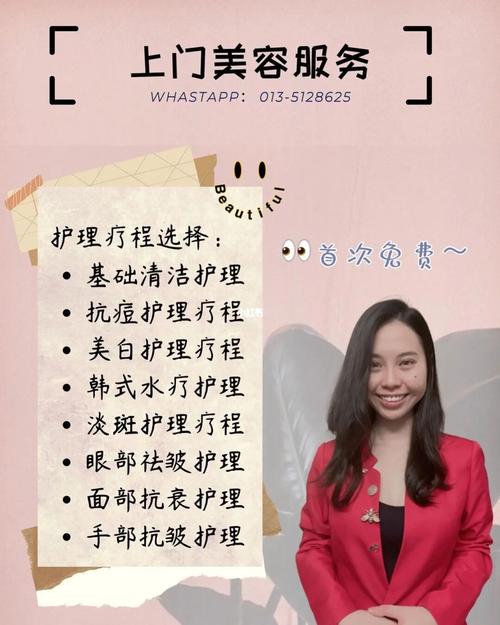 上门美容服务
WHASTAPP: 013-5128625
Beautiful
护理疗程选择：
• 基础清洁护理
• 抗痘护理疗程
• 美白护理疗程
• 韩式水疗护理
• 淡斑护理疗程
• 眼部祛皱护理
• 面部抗衰护理
• 手部抗皱护理
首次免费～
小红书